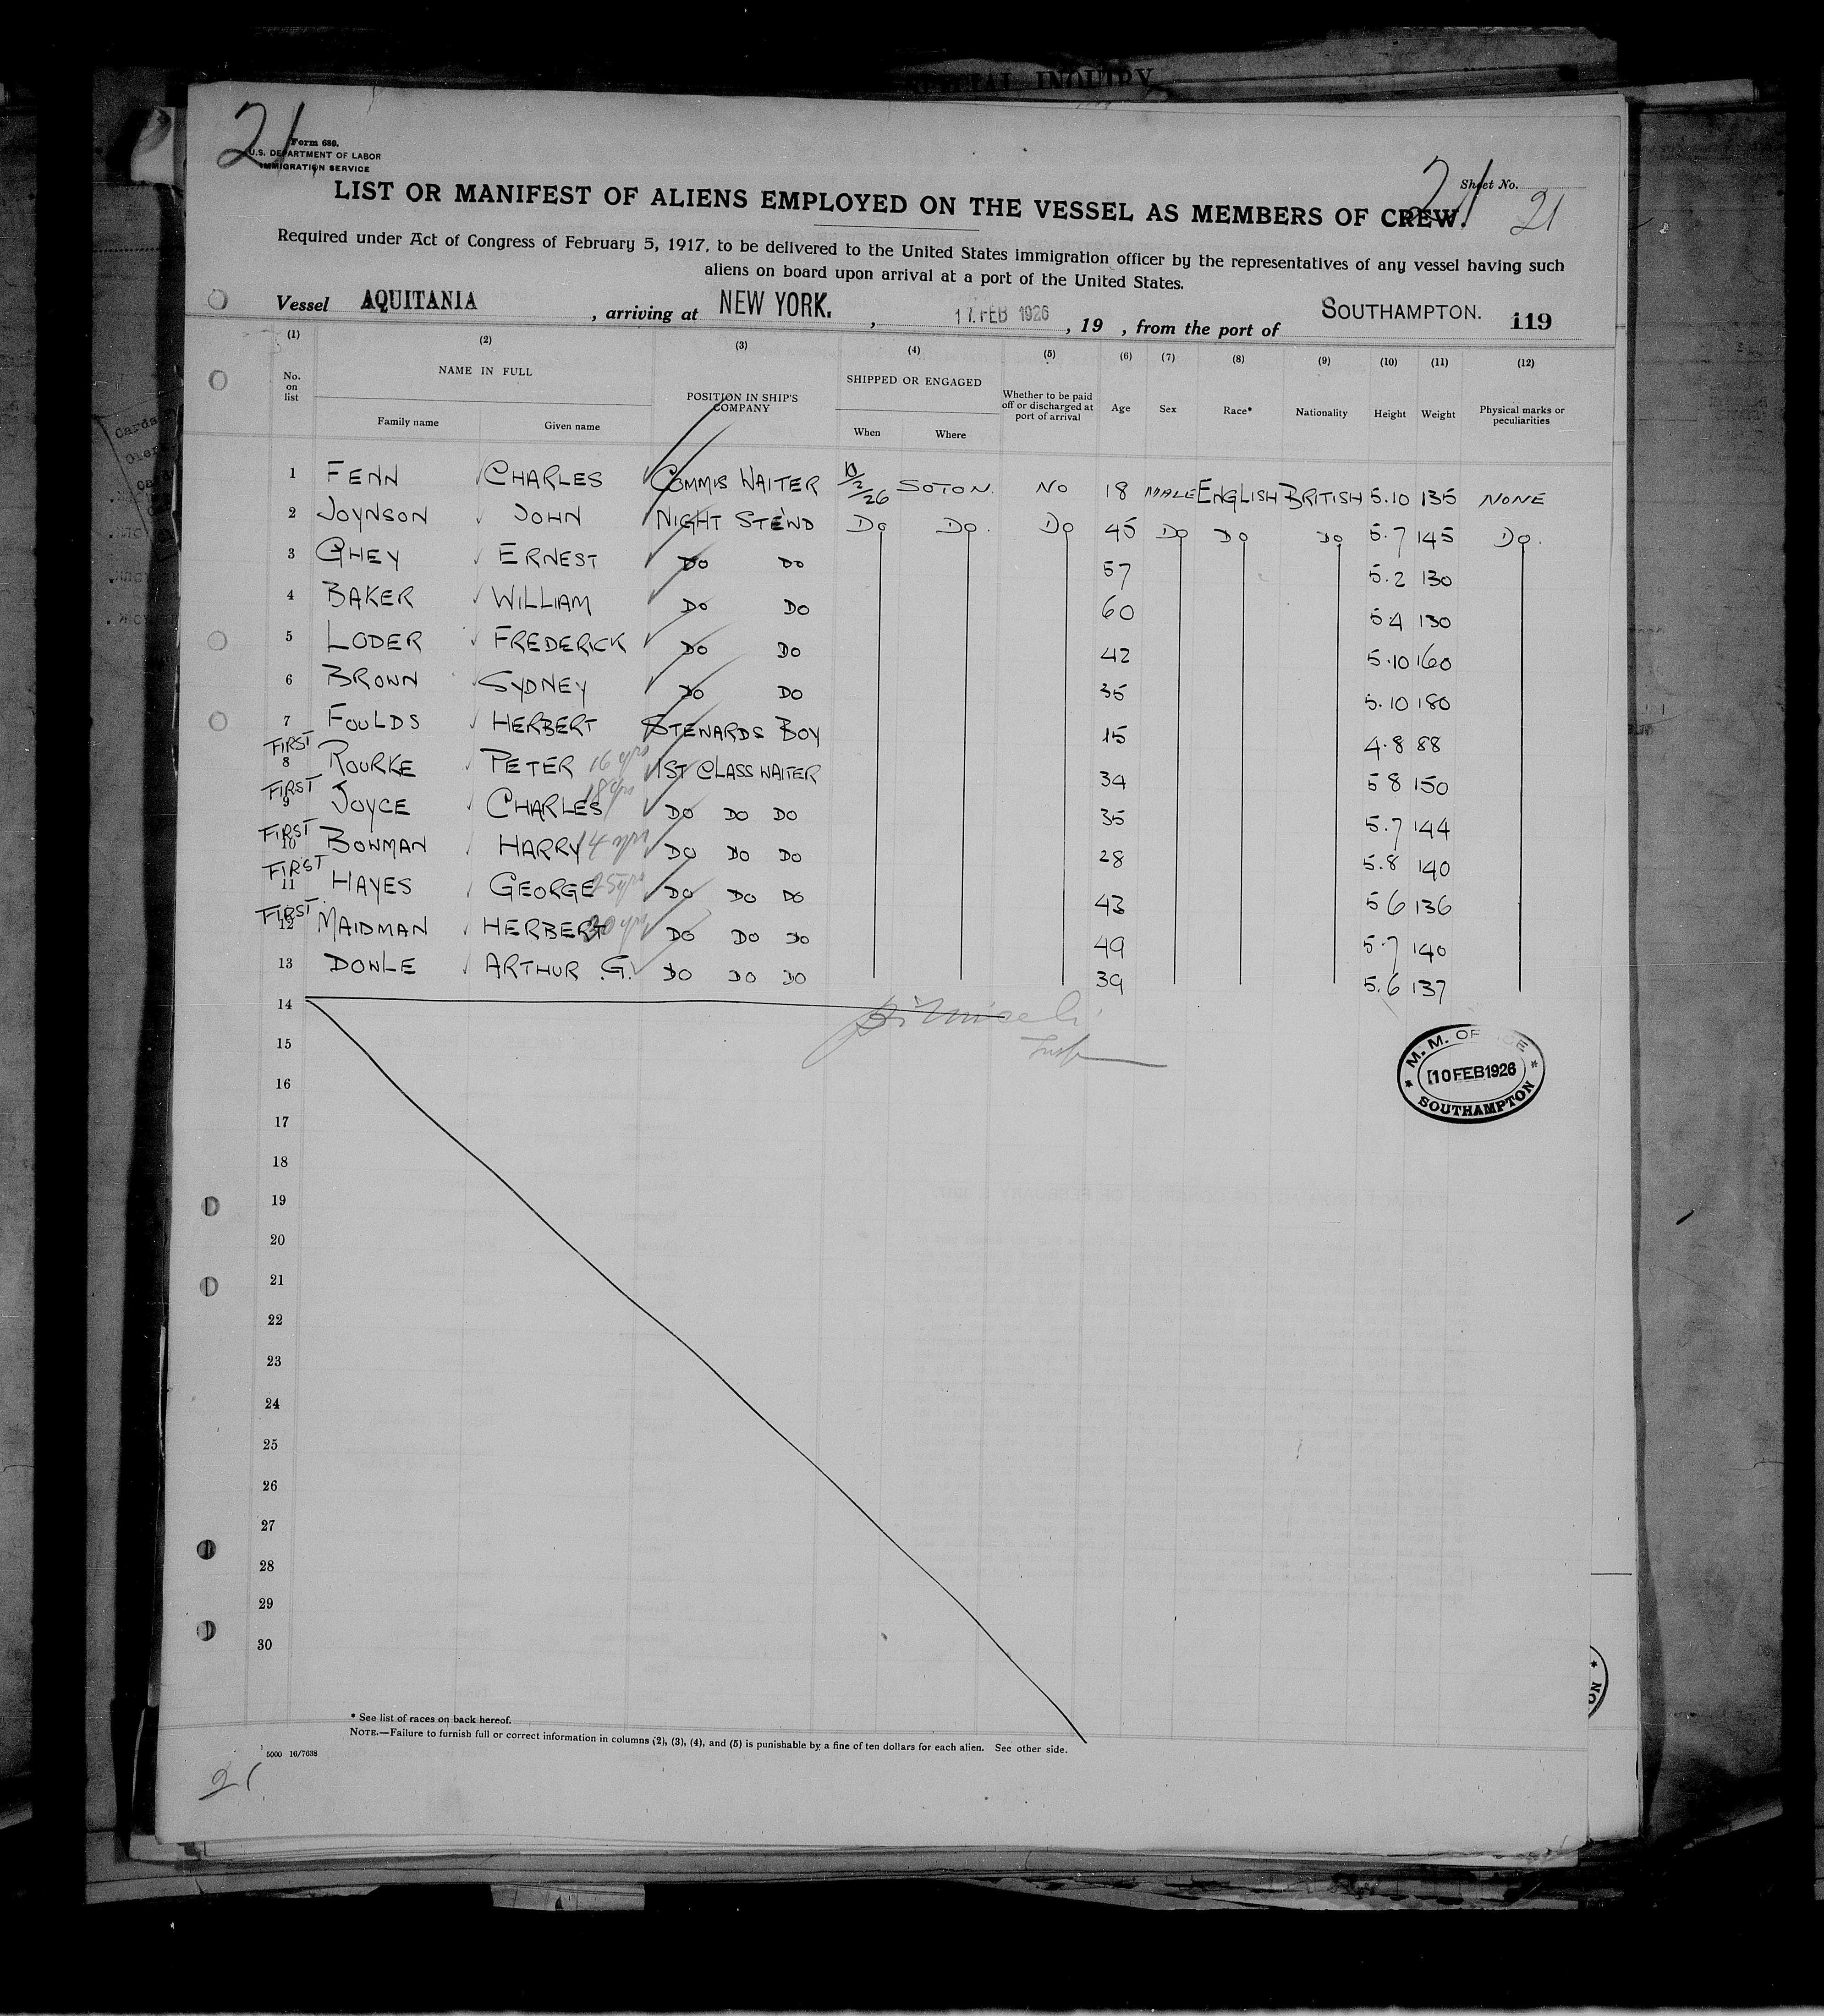 SPECIAL INQUIRY
21
Form 680.
U.S. DEPARTMENT OF LABOR
IMMIGRATION SERVICE
Sheet No. 21
21
LIST OR MANIFEST OF ALIENS EMPLOYED ON THE VESSEL AS MEMBERS OF CREW.
Required under Act of Congress of February 5, 1917, to be delivered to the United States immigration officer by the representatives of any vessel having such
aliens on board upon arrival at a port of the United States.
Vessel AQUITANIA , arriving at NEW YORK. , 17 FEB 1926 , 19 , from the port of SOUTHAMPTON. 119
(1) (2) (3) (4) (5) (6) (7) (8) (9) (10) (11) (12)
No. on list NAME IN FULL Family name Given name POSITION IN SHIP'S COMPANY SHIPPED OR ENGAGED When Where Whether to be paid off or discharged at port of arrival Age Sex Race* Nationality Height Weight Physical marks or peculiarities
1 FENN CHARLES COMMIS WAITER 10/2/26 SOTON. NO 18 MALE ENGLISH BRITISH 5.10 135 NONE
2 JOYNSON JOHN NIGHT STEWD DO DO. DO 45 DO DO DO 5.7 145 DO.
3 GHEY ERNEST DO DO 57 5.2 130
4 BAKER WILLIAM DO DO 60 5 4 130
5 LODER FREDERICK DO DO 42 5.10 160
6 BROWN SYDNEY DO DO 35 5.10 180
7 FOULDS HERBERT STEWARDS BOY 15 4.8 88
FIRST 8 ROURKE PETER 16 yrs 1ST CLASS WAITER 34 5 8 150
FIRST 9 JOYCE CHARLES 18 yrs DO DO DO 35 5.7 144
FIRST 10 BOWMAN HARRY 14 yrs DO DO DO 28 5.8 140
FIRST 11 HAYES GEORGE 25 yrs DO DO DO 43 5 6 136
FIRST. 12 MAIDMAN HERBERT 30 yrs DO DO DO 49 5.7 140
13 DOWLE ARTHUR G. DO DO DO 39 5.6 137
14
15
16
17
18
19
20
21
22
23
24
25
26
27
28
29
30
M. M. OFFICE
10 FEB 1926
SOUTHAMPTON
* See list of races on back hereof.
NOTE.—Failure to furnish full or correct information in columns (2), (3), (4), and (5) is punishable by a fine of ten dollars for each alien. See other side.
5000 16/7638
21